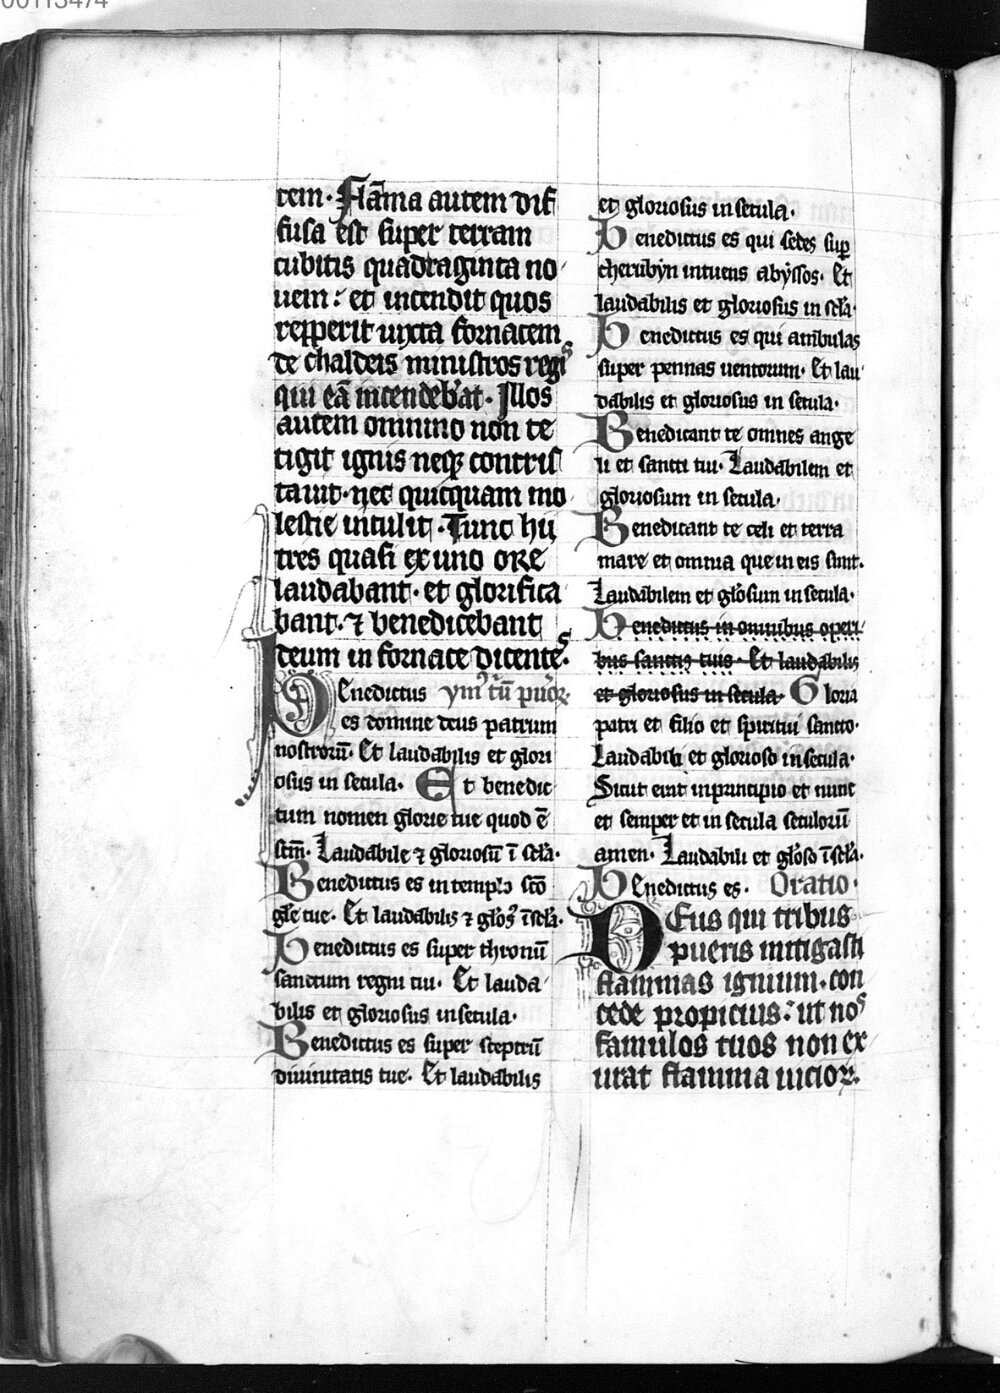 00113474
tem. Flāma autem dif
fusa est super terram
cubitis quadraginta no
uem: et incendit quos
repperit iuxta fornacem
de chaldeis ministros regis
qui eā incendeb'at. Illos
autem omnino non te
tigit ignis neq; contris
tauit. nec quicquam mo
lestie intulit. Tunc hii
tres quasi ex uno ore
laudabant. et glorifica
bant. ⁊ benedicebant
deum in fornace dicentes.
Benedictus ymˀ tūˀ puōꝝ.
es domine deus patrum
nostrorū. Et laudabilis et glori
osus in secula. Et benedic
tum nomen glorie tue quod ē
scm̄. Laudabile ⁊ gloriosū ī scl̄a.
Benedictus es in templo scō
gl̄e tue. Et laudabilis ⁊ glōs9 ī scl̄a.
Benedictus es super thronū
sanctum regni tui. Et lauda
bilis et gloriosus in secula.
Benedictus es super sceptrū
diuinitatis tue. Et laudabilis
et gloriosus in secula.
Benedictus es qui sedes suꝑ
cherubyn intuens abyssos. Et
laudabilis et gloriosus in scl̄a.
Benedictus es qui ambulas
super pennas uentorum. Et lau
dabilis et gloriosus in secula.
Benedicant te omnes ange
li et sancti tui. Laudabilem et
gloriosum in secula.
Benedicant te celi et terra
mare et omnia que in eis sunt.
Laudabilem et glōsum in secula.
Benedictus in omnibus operi
bus sanctis tuis. Et laudabilis
et gloriosus in secula. Gloria
patri et filio et spiritui sancto.
Laudabili et glorioso in secula.
Sicut erat in principio et nunc
et semper et in secula seculorū
amen. Laudabili et glōso ī scl̄a.
Benedictus es. Oratio.
Deus qui tribus
pueris mitigasti
flammas ignium. con
cede propicius: ut nos
famulos tuos non ex
urat flamma uicioꝝ.